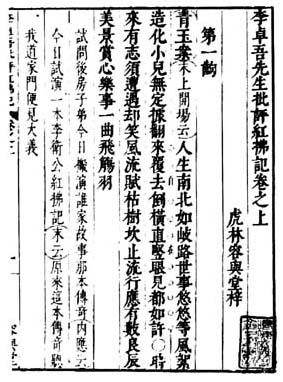 李卓吾先生批評紅拂記卷之上
虎林容與堂梓
第一齣
青玉案末上開場云人生南北如岐路世事悠悠等風絮
造化小兒無定據翻來覆去倒橫直竪眼見都如許○時
來有志須遭遇却笑風流賦枯樹坎止流行應有數良辰
美景賞心樂事一曲飛觴羽
試問後房子弟今日搬演誰家故事那本傳奇內應云
今日試演一本李衛公紅拂記末云原來這本傳奇聽
我道家門便見大義